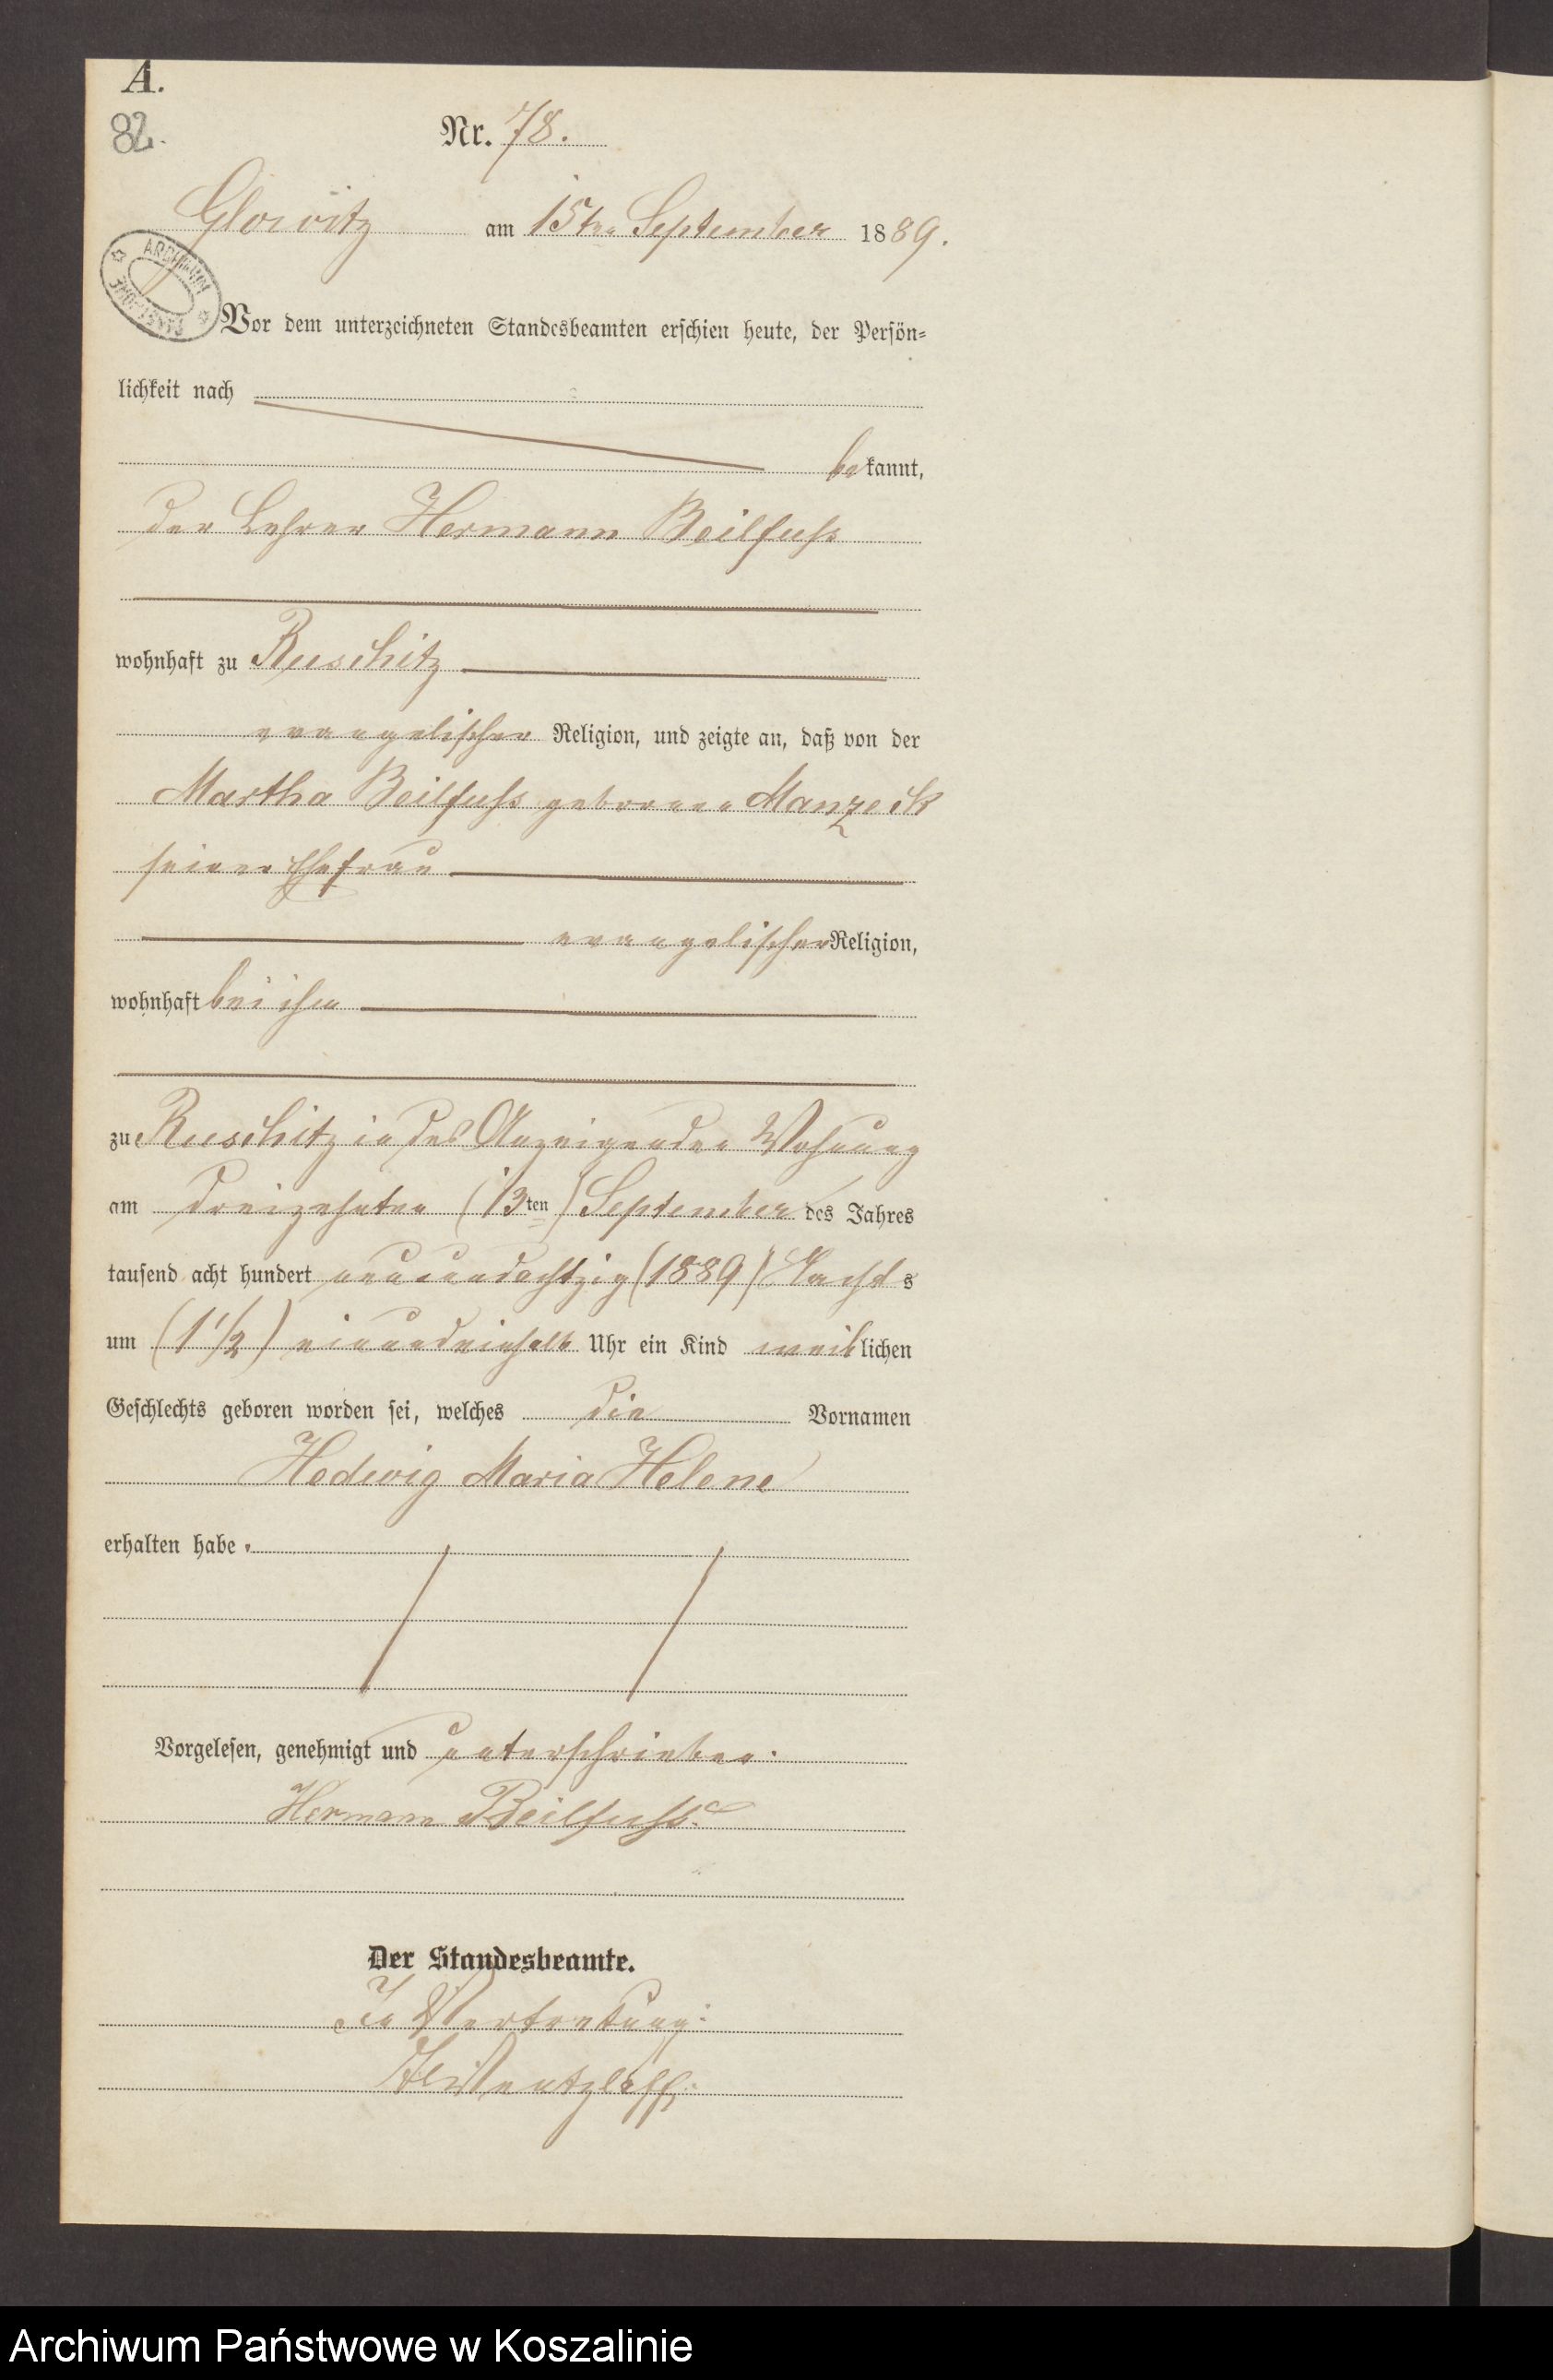 A.
82.
Nr. 78.
Glowitz am 15ten September 1889.
ARCHIWUM
Vor dem unterzeichneten Standesbeamten erschien heute, der Persön-
lichkeit nach
bekannt,
der Lehrer Hermann Beilfuhs
wohnhaft zu Ruschitz
evangelischer Religion, und zeigte an, daß von der
Martha Beilfuhs geborenen Manzeck
seiner Ehefrau
evangelischer Religion,
wohnhaft bei ihm
zu Ruschitz in des Anzeigenden Wohnung
am dreizehnten (13ten) September des Jahres
tausend acht hundert neunundachtzig (1889) Nachts
um (1 1/2) einundeinhalb Uhr ein Kind weiblichen
Geschlechts geboren worden sei, welches die Vornamen
Hedwig Maria Helene
erhalten habe.
Vorgelesen, genehmigt und unterschrieben.
Hermann Beilfuhs.
Der Standesbeamte.
In Vertretung:
Wentzlaff.
Archiwum Państwowe w Koszalinie